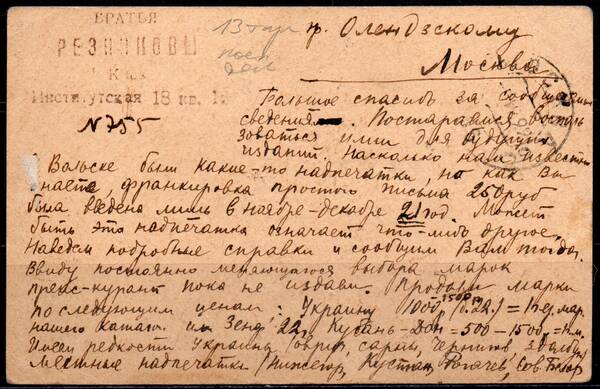 БРАТЬЯ
РЕЗНИКОВЫ
Киев
Институтская 18 кв.
№755
13 мар
гр. Олендзскому
Москва
Большое спасибо за сообщаемые
сведения. Постараемся восполь
зоваться ими для будущих
изданий. Насколько нам известно
в Вольске были какие-то надпечатки, но как Вы
знаете, франкировка простого письма 250 руб
была введена лишь в ноябре-декабре 21 год. Может
быть эта надпечатка означает что-либо другое.
Наведем подробные справки и сообщим Вам тогда.
Ввиду постоянно меняющегося выбора марок
прейс-курант пока не издаем. Продаем марки
по следующим ценам: Украину 1000 1500 = 1 нем. мар.
нашего катал. Зенф 22, Кубань-Дон = 500-1500 =
Имеем редкости Украины
местные надпечатки Кустан, Рогачев,